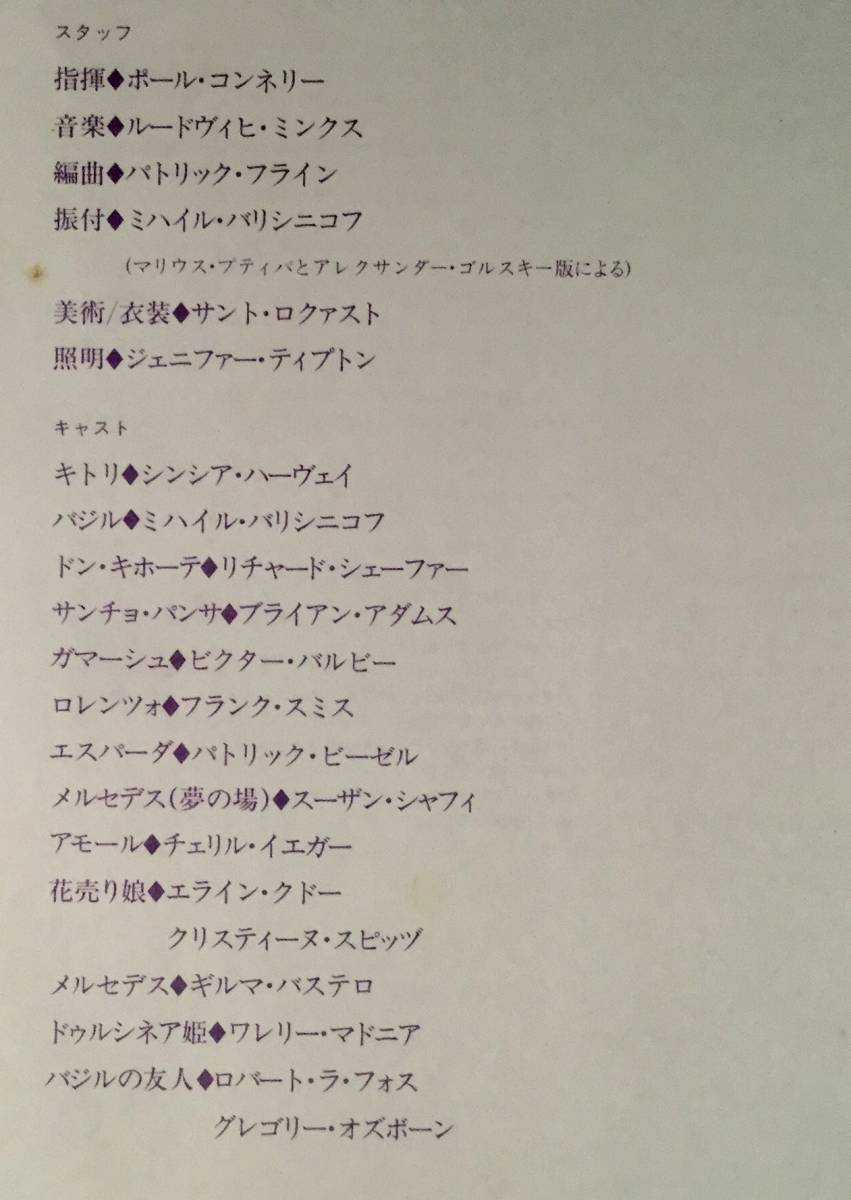 スタッフ
指揮◆ポール・コンネリー
音楽◆ルードヴィヒ・ミンクス
編曲◆パトリック・フライン
振付◆ミハイル・バリシニコフ
(マリウス・プティパとアレクサンダー・ゴルスキー版による)
美術/衣装◆サント・ロクァスト
照明◆ジェニファー・ティプトン
キャスト
キトリ◆シンシア・ハーヴェイ
バジル◆ミハイル・バリシニコフ
ドン・キホーテ◆リチャード・シェーファー
サンチョ・パンサ◆ブライアン・アダムス
ガマーシュ◆ビクター・バルビー
ロレンツォ◆フランク・スミス
エスパーダ◆パトリック・ビーゼル
メルセデス(夢の場)◆スーザン・シャフィ
アモール◆チェリル・イエガー
花売り娘◆エライン・クドー
クリスティーヌ・スピッツ
メルセデス◆ギルマ・バステロ
ドゥルシネア姫◆ワレリー・マドニア
バジルの友人◆ロバート・ラ・フォス
グレゴリー・オズボーン